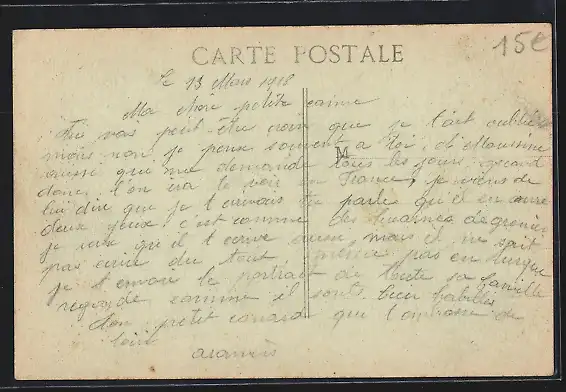 CARTE POSTALE
15€
le 13 Mars 1918
Ma chère petite
Tu vas peut-être croire que je t'ait oubliée
mais non je pense souvent a toi, et Moussine
aussi que me demande tous les jours quand
M
donc t'on ira te voir en France, je viens de
lui dire que je t'écrivais tu parles qu'il en ouvre
deux yeux c'est comme des lucarnes de grenier
je veux qu'il t'écrive aussi, mais il ne sait
pas écrire du tout même pas en turque
je t'envoie le portrait de toute sa famille
regarde comme il sont bien habillés
Ton petit canard que t'embrasse de
loin